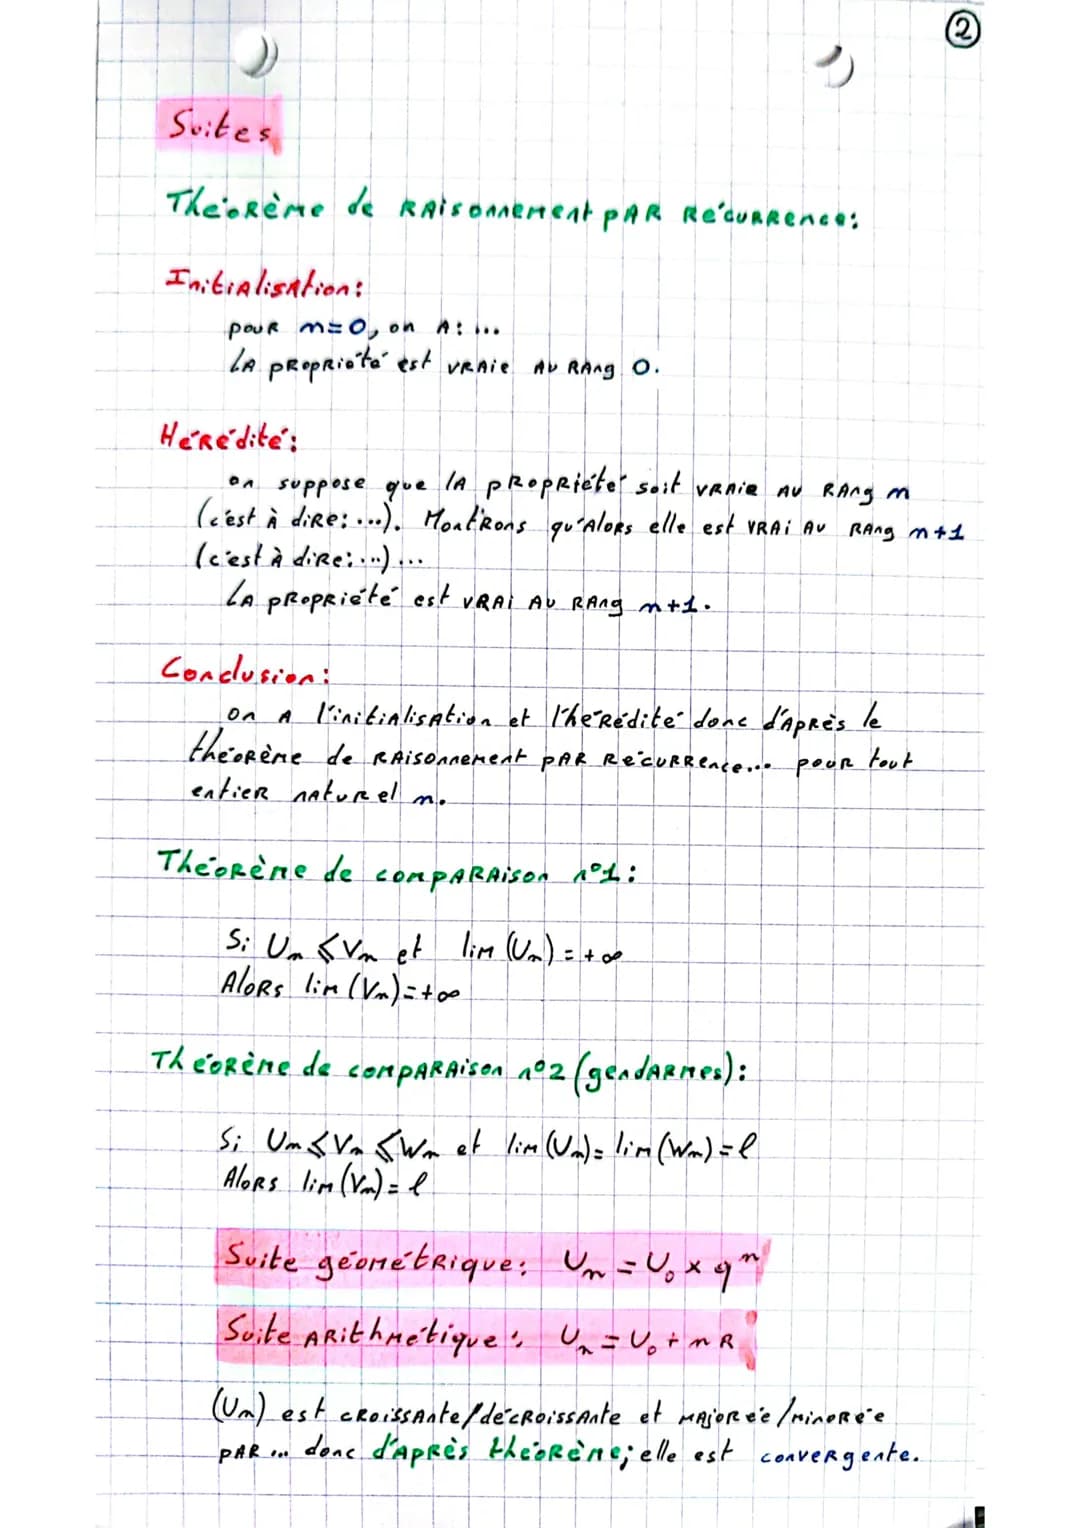 ②
Suites
Théorème de raisonnement par récurrence:
Initialisation:
pour n=0, on a: ...
La propriété est vraie au rang 0.
Hérédité:
on suppose que la propriéter soit vraie au rang n
(c'est à dire: ...). Montrons qu'alors elle est vrai au rang n+1
(c'est à dire: ...) ...
La propriété est vrai au rang n+1.
Conclusion:
on a l'initialisation et l'hérédité donc d'après le
théorème de raisonnement par récurrence... pour tout
entier naturel n.
Théorème de comparaison n°1:
Si Un ≤ Vn et lim (Un) = +∞
Alors lim (Vn) = +∞
Théorème de comparaison n°2 (gendarmes):
Si Un ≤ Vn ≤ Wn et lim (Un) = lim (Wn) = l
Alors lim (Vn) = l
Suite géométrique: Un = U₀ × qⁿ
Suite arithmétique: Un = U₀ + nR
(Un) est croissante/décroissante et majorée/minorée
par ... donc d'après théorème; elle est convergente.